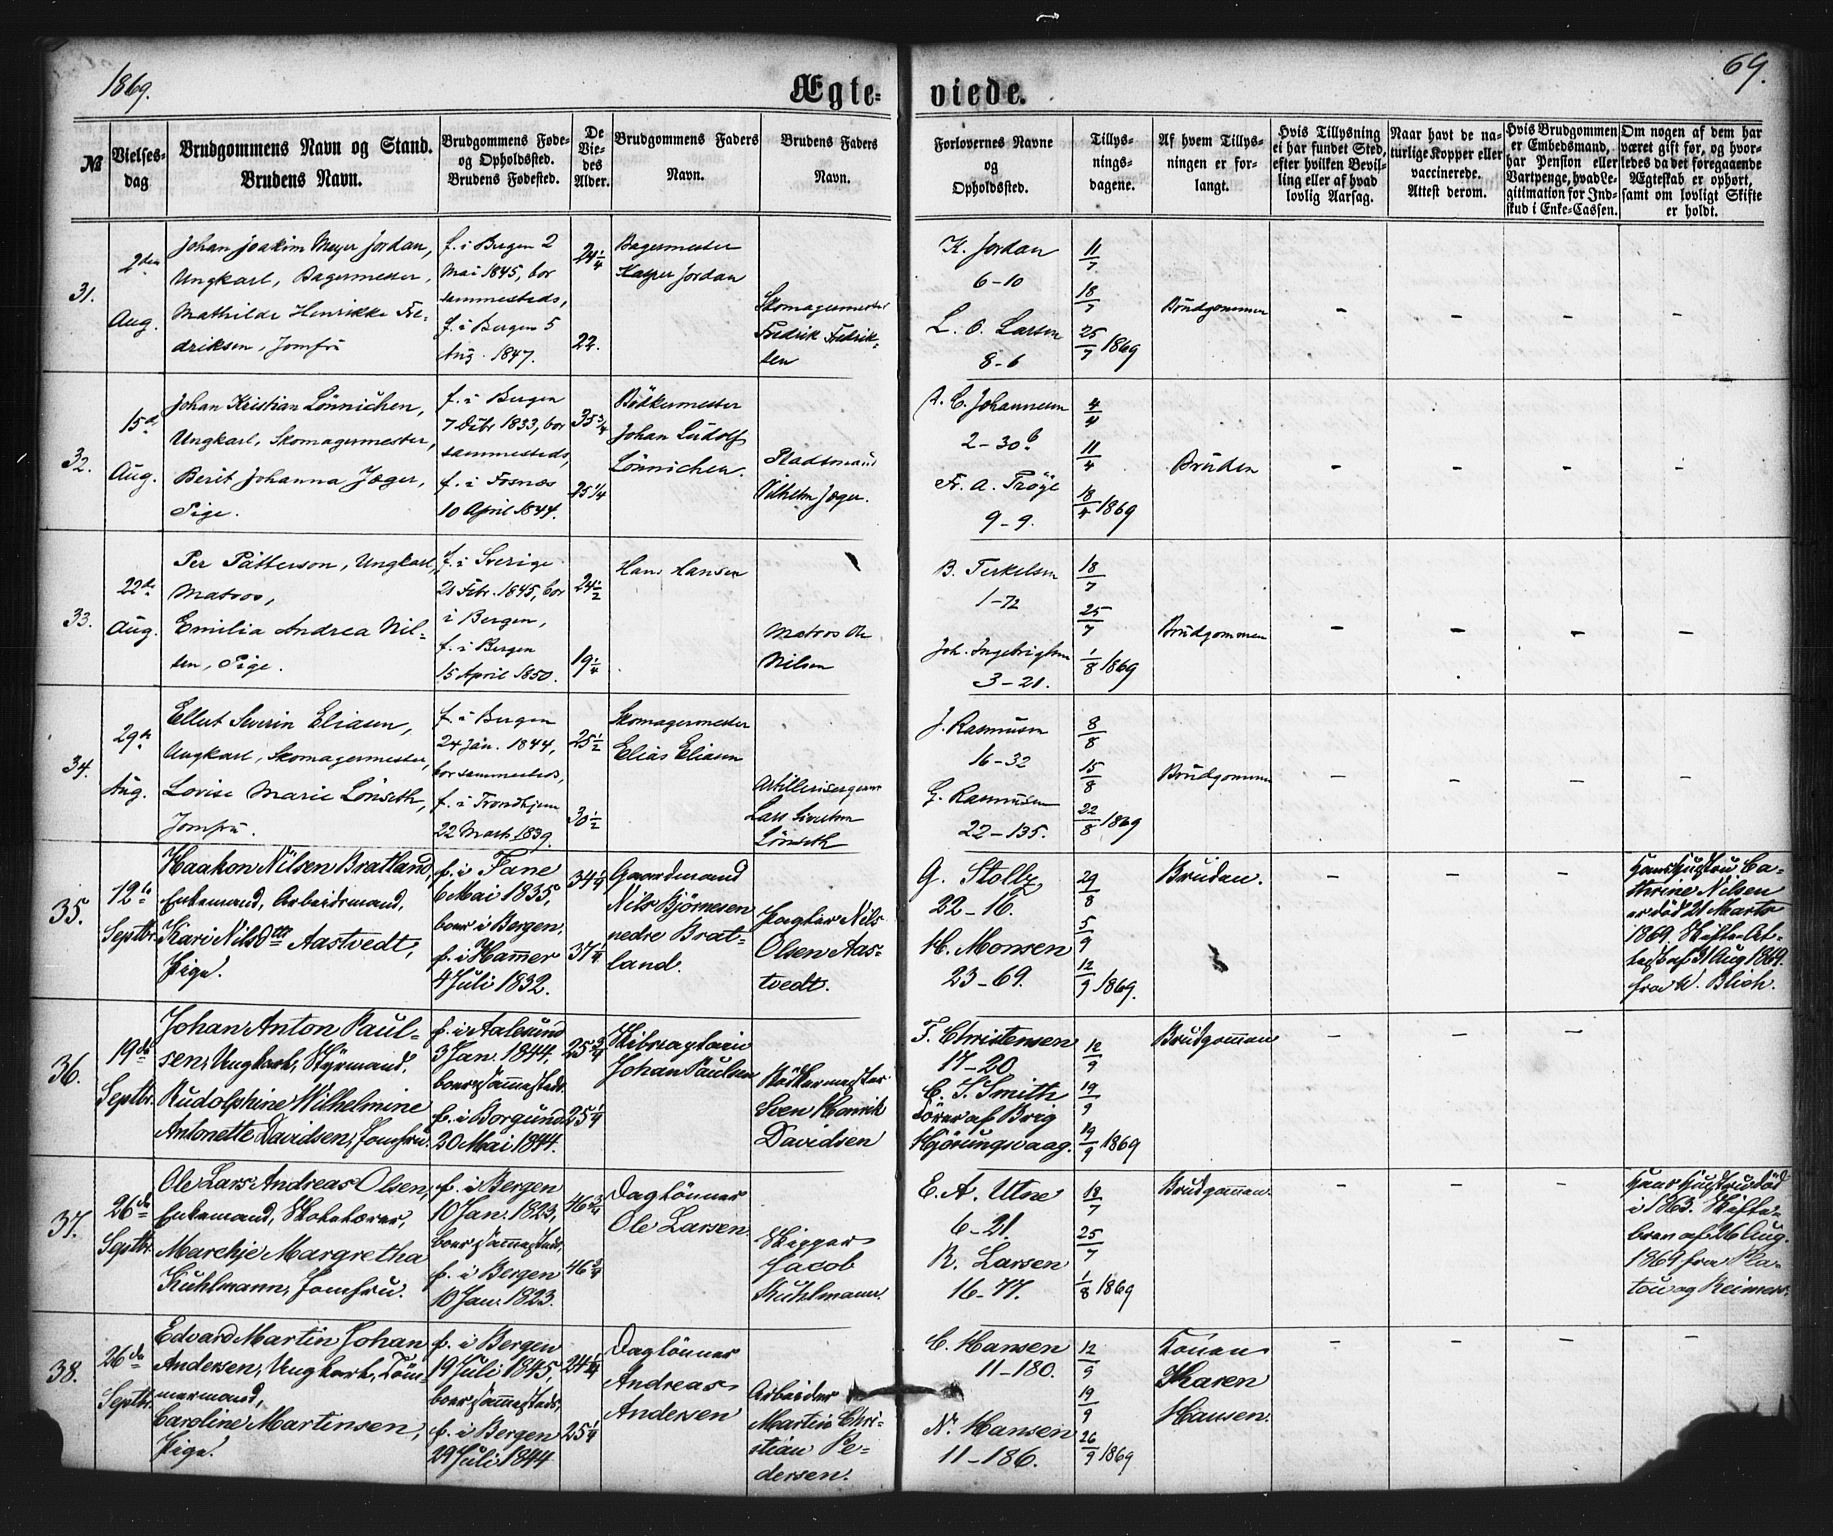 1869.
Ægte-
viede.
69.
№
Vielses-
dag
Brudgommens Navn og Stand.
Brudens Navn.
Brudgommens Føde-
og Opholdssted.
Brudens Fødested.
De
Vie-
des
Alder.
Brudgommens Faders
Navn.
Brudens Faders
Navn.
Forlovernes Navne
og
Opholdssted.
Tillys-
nings-
dagene.
Af hvem Tillys-
ningen er for-
langt.
Hvis Tillysning
ei har fundet Sted,
efter hvilken Bevil-
ling eller af hvad
lovlig Aarsag.
Naar havt de na-
turlige Kopper eller
vaccinerede.
Attest derom.
Hvis Brudgommen
er Embedsmand,
har Pension eller
Vartpenge, hvad Le-
gitimation for Ind-
skud i Enke-Cassen.
Om nogen af dem har
været gift før, og hvor-
ledes da det foregaaende
Ægteskab er ophørt,
samt om lovligt Skifte
er holdt.
31.
2den
Aug.
Johan Joakim Meyer Jordan,
Ungkarl, Bagermester,
Mathilde Henrikke Fre-
driksen, Jomfru
f. i Bergen 2
Mai 1845, bor
sammesteds,
f. i Bergen 5
Aug. 1847.
24 1/4
22.
Bagermester
Kasper Jordan
Skomagermester
Fredrik Fredrik-
sen
K. Jordan
6-10
L. O. Larsen
8-6
11/7
18/7
25/7 1869
Brudgommen
- - - -
32.
15de
Aug.
Johan Kristian Lönnichen,
Ungkarl, Skomagermester,
Berit Johanna Jæger,
Pige.
f. i Bergen
7 Dcbr 1833, bor
sammesteds,
f. i Fosnæs
10 April 1844.
35 3/4
25 1/4
Bödkermester
Johan Ludolf
Lönnichen.
Stadsmaud
Vilhelm Jæger.
C. Johannesen
2-30 b
Fr. A. Tröye
9-9.
4/4
11/4
18/4 1869
Bruden
- - - -
33.
22de
Aug.
Per Pätterson, Ungkarl,
Matros,
Emilia Andrea Nil-
sen, Pige.
f. i Sverige
21 Febr. 1845, bor
i Bergen,
f. i Bergen
15 April 1850.
24 1/2
19 1/4
Hans Hansen
Matros Ole
Nilsen
B. Terkelsen
1-72
Joh. Ingebrigtsen
3-21.
18/7
25/7
1/8 1869
Brudgommen
- - - -
34.
29de
Aug.
Ellert Severin Eliasen,
Ungkarl, Skomagermester,
Lovise Marie Lönseth,
Jomfru.
f. i Bergen
24 Jan. 1844,
bor sammesteds,
f. i Trondhjem
22 Marts 1839.
25 1/2
30 1/2
Skomagermester
Elias Eliasen
Artillerisergeant
Lars Sivertsen
Lönseth
J. Rasmusen
16-32
G. Rasmusen
22-135.
8/8
15/8
22/8 1869
Brudgommen
- - - -
35.
12te
Septbr.
Haakon Nilsen Bratland,
Enkemand, Arbeidsmand,
Kari Nilsdtr Aastvedt,
Pige.
f. i Fane
6 Mai 1835,
boer i Bergen.
f. i Hammer
4 Juli 1832.
34 1/4
37 1/4
Gaardmand
Nils Björnesen
nedre Brat-
land.
Pagter Nils
Olsen Aas-
tvedt.
G. Stolte
22-16.
H. Monsen
23-69.
29/8
5/9
12/9 1869.
Bruden.
- - -
Hans Hustru Ca-
thrine Nilsen
er död 21 Marts
1869. Skifte-At-
test af 31 Aug 1869.
fra W. Blich.
36.
19de
Septbr.
Johan Anton Paul-
sen, Ungkarl, Styrmand,
Rudolphine Wilhelmine
Antonette Davidsen, Jomfru.
f. i Aalesund
3 Jan. 1844,
boer sammesteds.
f. i Borgund
20 Mai 1844.
25 3/4
25 1/4
Skibscaptain
Johan Paulsen
Bödkermester
Sven Henrik
Davidsen
T. Christensen
17-20
C. T. Smith
Förer af Brig
Hjörungvaag.
12/9
19/9
19/9 1869
Brudgommen
- - -
37.
26de
Septbr.
Ole Lars Andreas Olsen,
Enkemand, Skolelærer,
Marchje Margretha
Kuhlmann, Jomfru.
f. i Bergen
10 Jan. 1823,
boer sammesteds,
f. i Bergen
10 Jan. 1823.
46 3/4
46 3/4
Daglönner
Ole Larsen.
Skipper
Jacob
Kuhlmann.
E. A. Utne
6-21.
R. Larsen
16-77.
18/7
25/7
1/8 1869
Brudgommen
- - -
Hans Hustru död
i 1863. Skifte-
brev af 26 Aug.
1869 fra Pla-
tou og Reimers.
38.
26de
Septbr.
Edvard Martin Johan
Andersen, Ungkarl, Töm-
mermand,
Caroline Martinsen,
Pige.
f. i Bergen
19 Juli 1845,
boer sammesteds,
f. i Bergen
29 Juli 1844
24 1/4
25 1/4
Daglönner
Andreas
Andersen
Arbeider
Martin Chri-
stian Pe-
dersen.
C. Hansen
11-180.
N. Hansen
11-186.
12/9
19/9
26/9 1869
Konen
Karen
Hansen.
- - - -